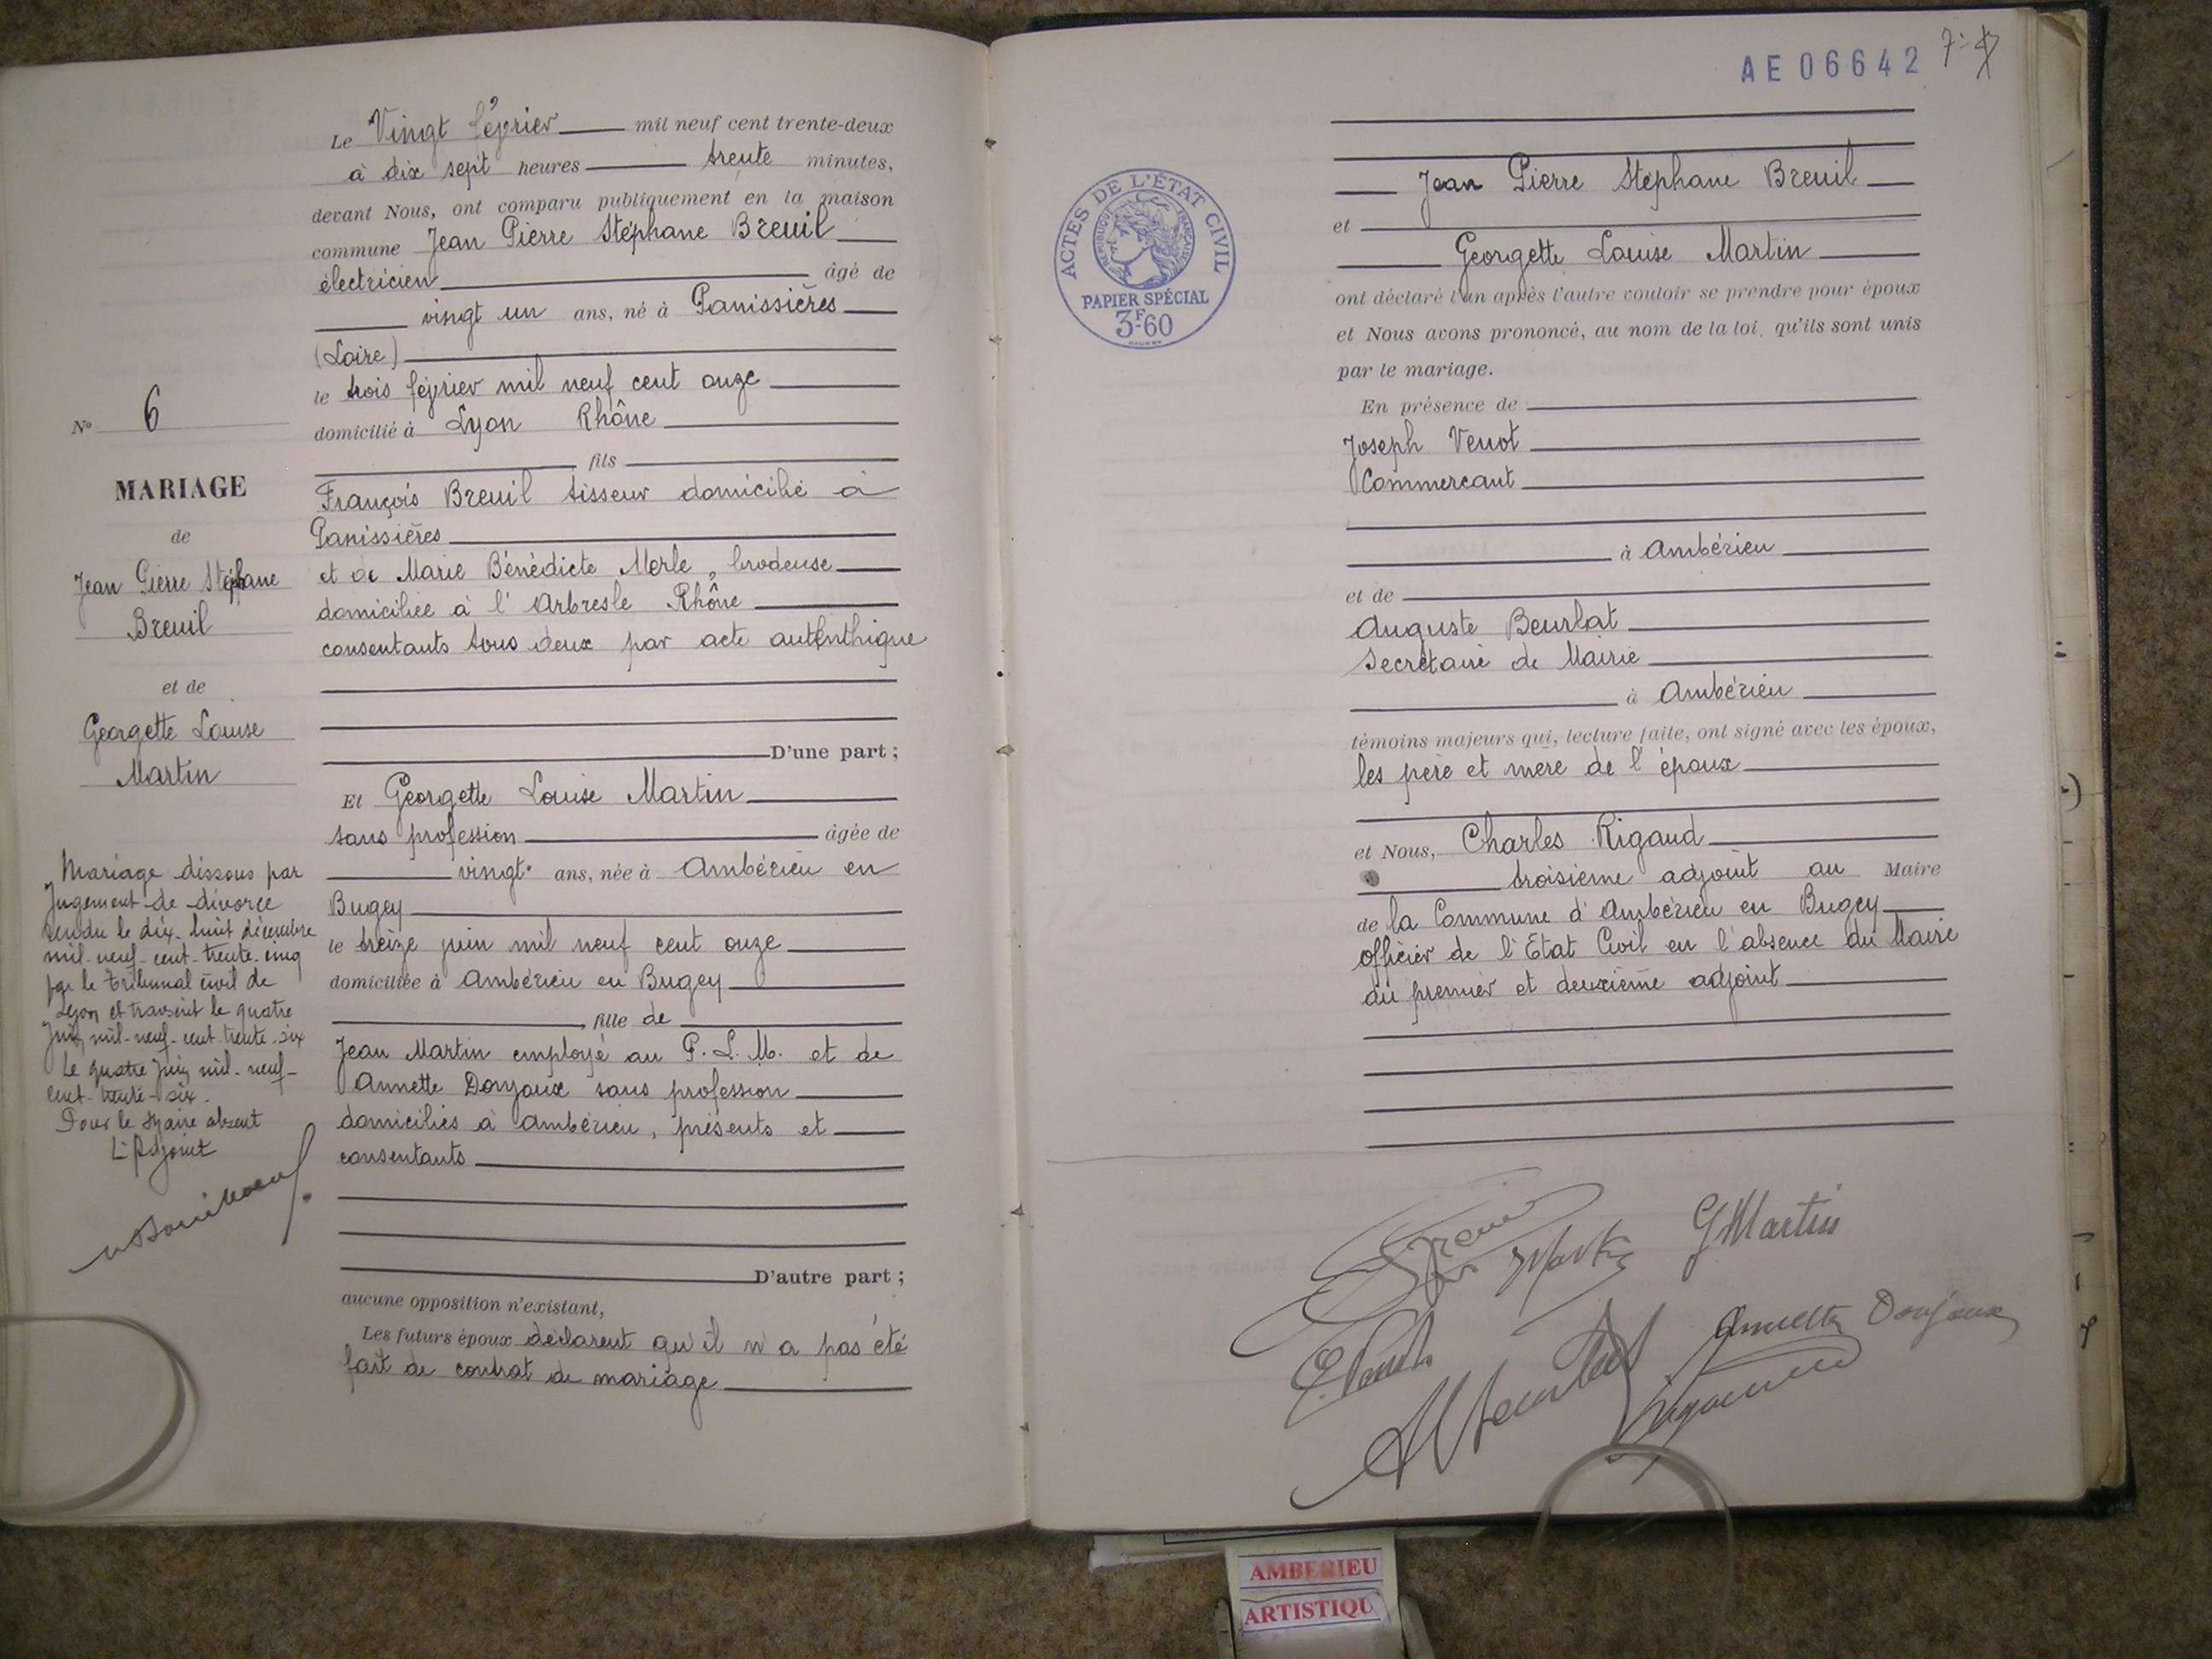 Nº 6
MARIAGE
de
Jean Pierre Stéphane
Breuil
et de
Georgette Louise
Martin
Mariage dissous par
Jugement de divorce
rendu le dix-huit décembre
mil-neuf-cent-trente-cinq
par le tribunal civil de
Lyon et transcrit le quatre
Juin mil-neuf-cent-trente-six
Le quatre Juin mil-neuf-
cent-trente-six.
Pour le Maire absent
L'Adjoint
Le Vingt février mil neuf cent trente-deux
à dix sept heures trente minutes,
devant Nous, ont comparu publiquement en la maison
commune Jean Pierre Stéphane Breuil
électricien âgé de
vingt un ans, né à Panissières
(Loire)
le trois février mil neuf cent onze
domicilié à Lyon Rhône
fils
François Breuil tisseur domicilié à
Panissières
et de Marie Bénédicte Merle, brodeuse
domiciliée à l'Arbresle Rhône
consentants tous deux par acte authenthique
D'une part ;
Et Georgette Louise Martin
sans profession âgée de
vingt ans, née à Ambérieu en
Bugey
le treize juin mil neuf cent onze
domiciliée à Ambérieu en Bugey
, fille de
Jean Martin employé au P.L.M. et de
Annette Donjoux sans profession
domiciliés à Ambérieu, présents et
consentants
D'autre part ;
aucune opposition n'existant,
Les futurs époux déclarent qu'il n'a pas été
fait de contrat de mariage
AE06642
ACTES DE L'ÉTAT CIVIL
RÉPUBLIQUE FRANÇAISE
PAPIER SPÉCIAL
3F60
Jean Pierre Stéphane Breuil
et
Georgette Louise Martin
ont déclaré l'un après l'autre vouloir se prendre pour époux
et Nous avons prononcé, au nom de la loi, qu'ils sont unis
par le mariage.
En présence de
Joseph Venot
Commercant
à Ambérieu
et de
Auguste Beurlat
Secrétaire de Mairie
à Ambérieu
témoins majeurs qui, lecture faite, ont signé avec les époux,
les père et mère de l'époux
et Nous, Charles Rigaud
troisième adjoint au Maire
de la Commune d'Ambérieu en Bugey
officier de l'Etat Civil en l'absence du Maire
du premier et deuxième adjoint
G Martin
Annette Donjoux
AMBERIEU
ARTISTIQU